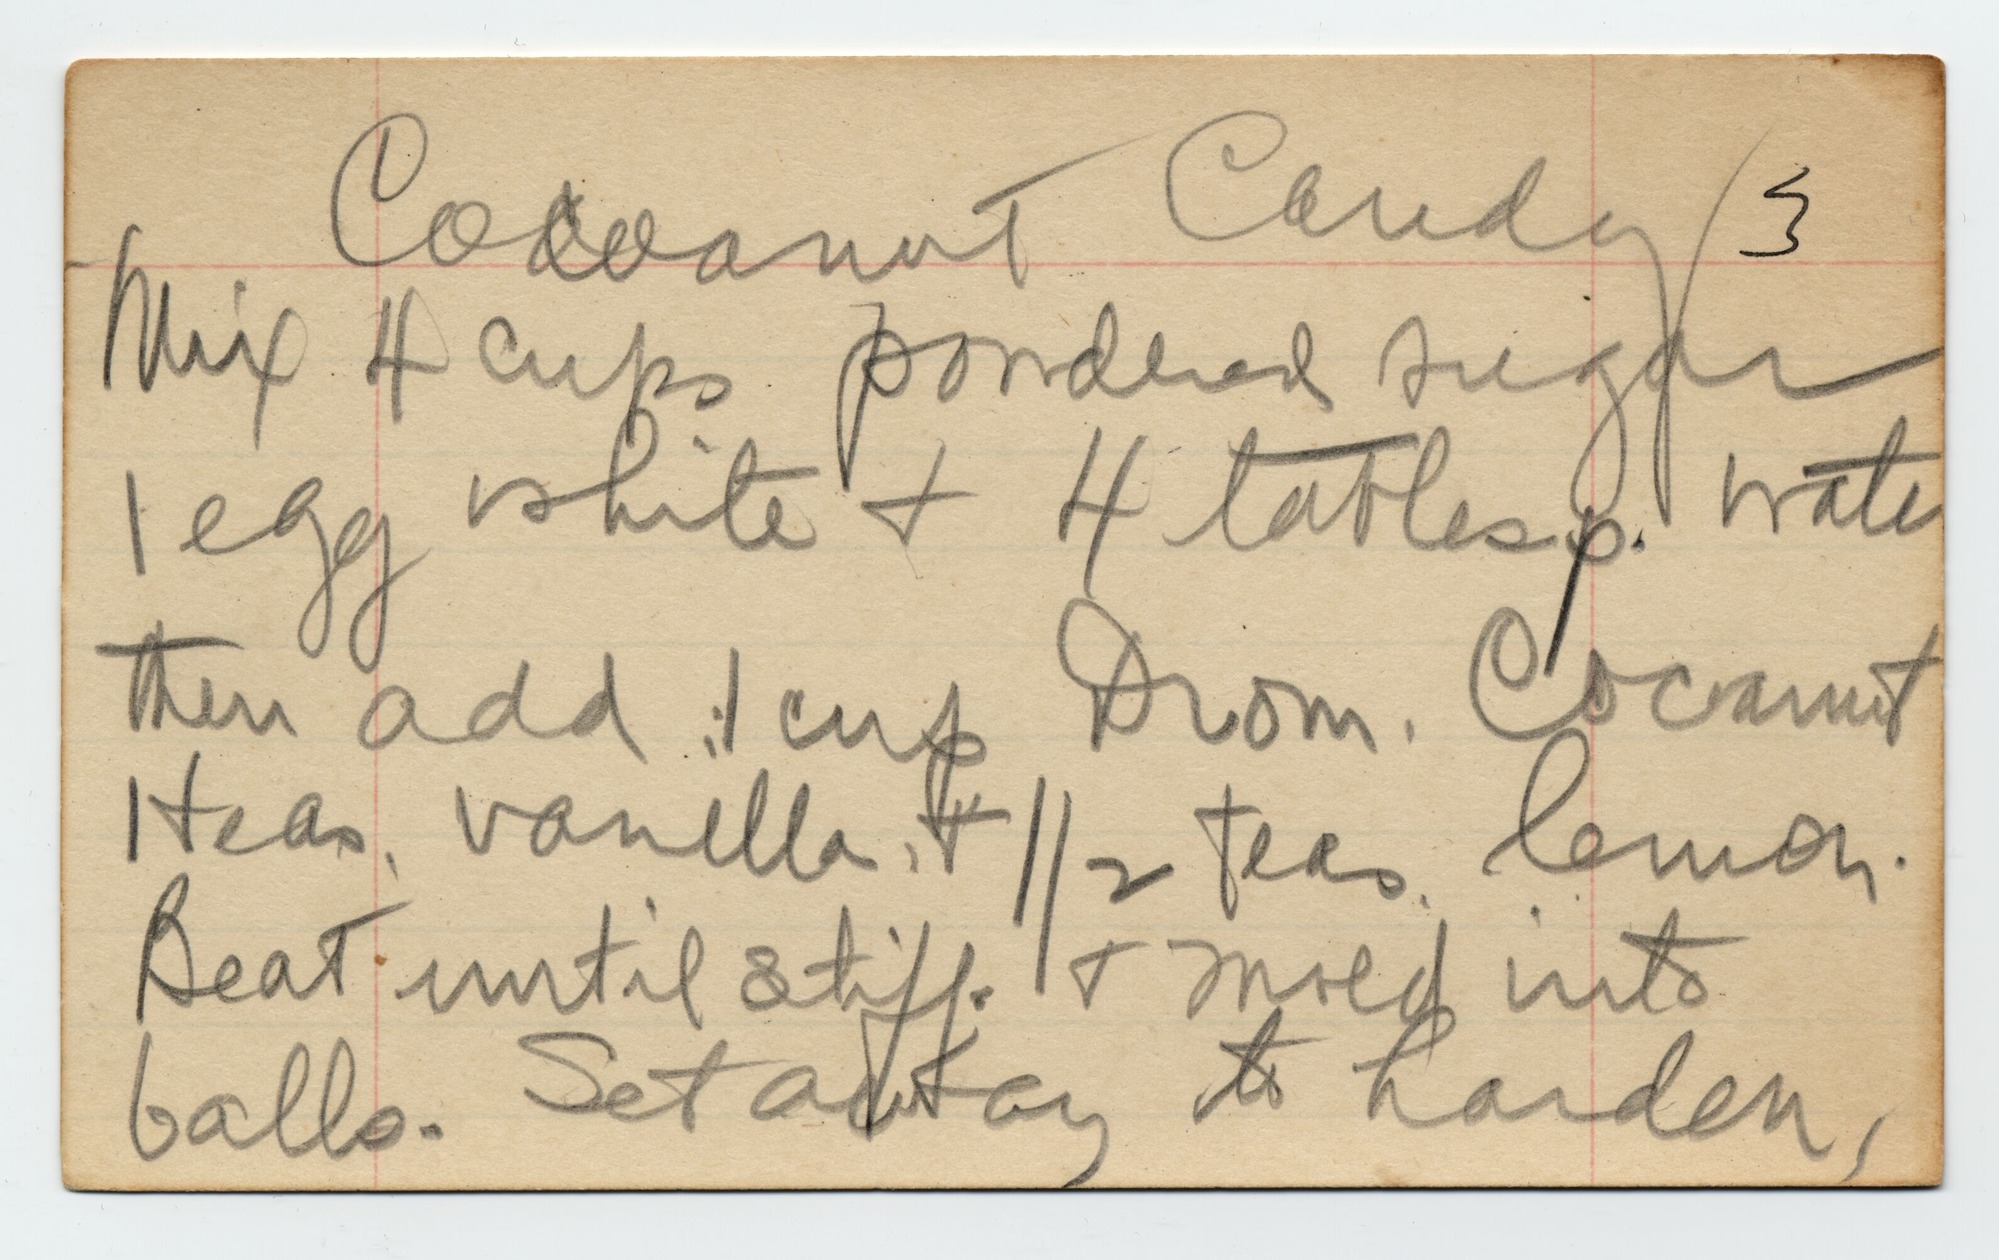 Cocoanut Candy 3
Mix 4 cups powdered sugar
1 egg white + 4 tablesp. water
then add 1 cup Drom. Cocoanut
1 teas. vanilla, + 1/2 teas. lemon.
Beat until stiff. + mold into
balls. Set away to harden,